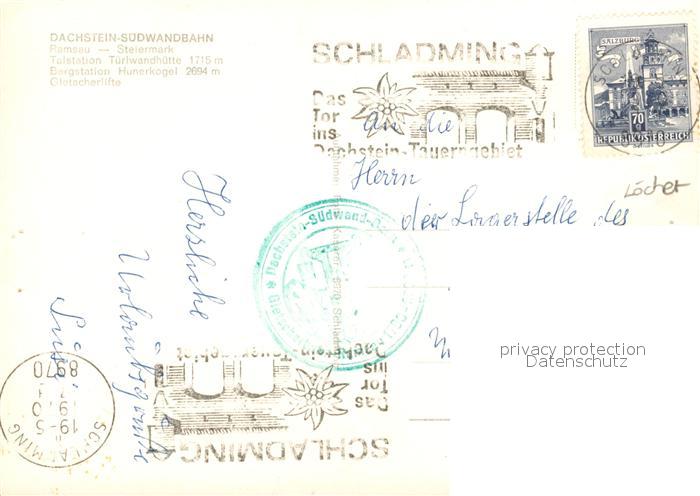 DACHSTEIN-SÜDWANDBAHN
Ramsau — Steiermark
Talstation Türlwandhütte 1715 m
Bergstation Hunerkogel 2694 m
Gletscherlifte
SCHLADMING
Das
Tor
ins
Dachstein-Tauerngebiet
SALZBURG
70
g
REPUBLIK ÖSTERREICH
An die
Herrn
der Lagerstelle des
Löcher
Herzliche
Urlaubsgrüße
Susi
Dachstein-Südwand-
privacy protection
Datenschutz
8970
1970
19-5
SCHLADMING
Dachstein-Tauerngebiet
ins
Tor
Das
SCHLADMING